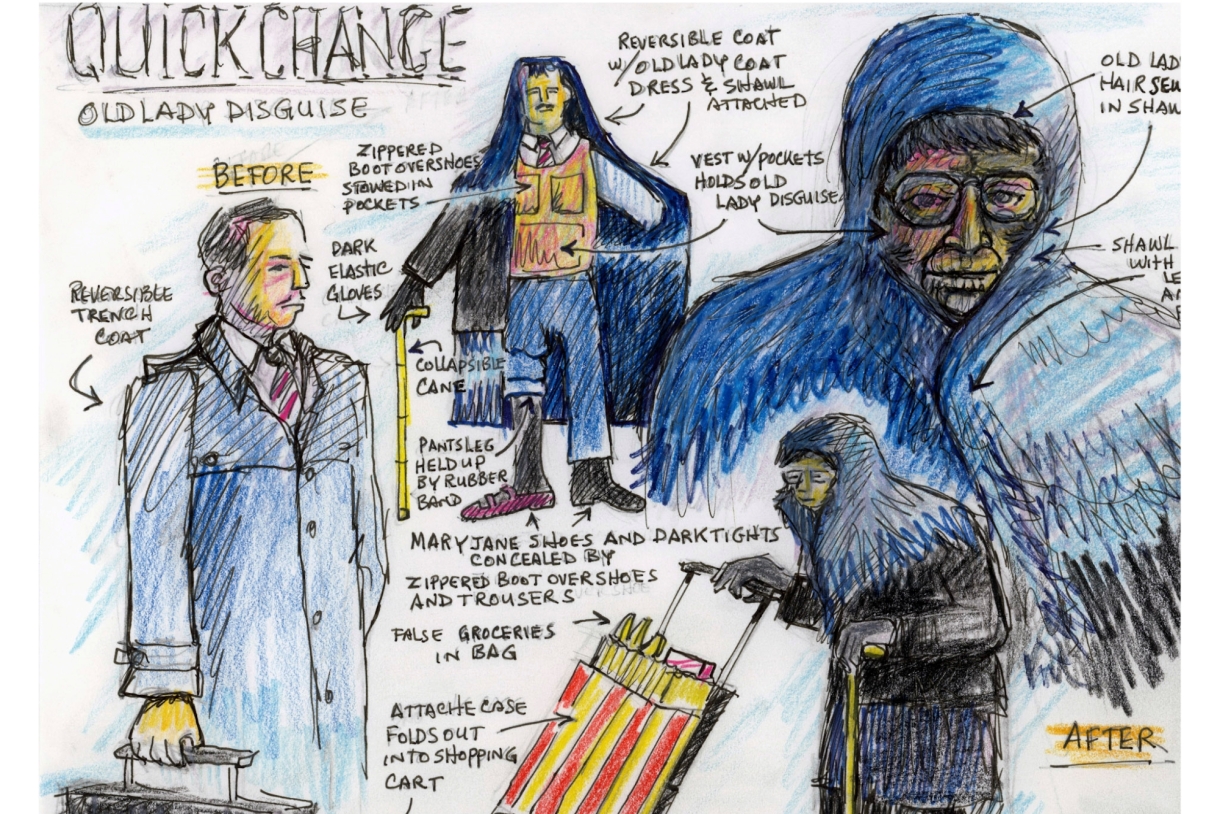 QUICK CHANGE
OLD LADY DISGUISE
BEFORE
REVERSIBLE
TRENCH
COAT
ZIPPERED
BOOT OVERSHOES
STOWED IN
POCKETS
DARK
ELASTIC
GLOVES
COLLAPSIBLE
CANE
PANTS LEG
HELD UP
BY RUBBER
BAND
REVERSIBLE COAT
W/OLD LADY COAT
DRESS & SHAWL
ATTACHED
VEST W/POCKETS
HOLDS OLD
LADY DISGUISE
OLD LAD
HAIR SEW
IN SHAW
SHAWL
WITH
LE
MARY JANE SHOES AND DARK TIGHTS
CONCEALED BY
ZIPPERED BOOT OVERSHOES
AND TROUSERS
FALSE GROCERIES
IN BAG
ATTACHE CASE
FOLDS OUT
INTO SHOPPING
CART
AFTER